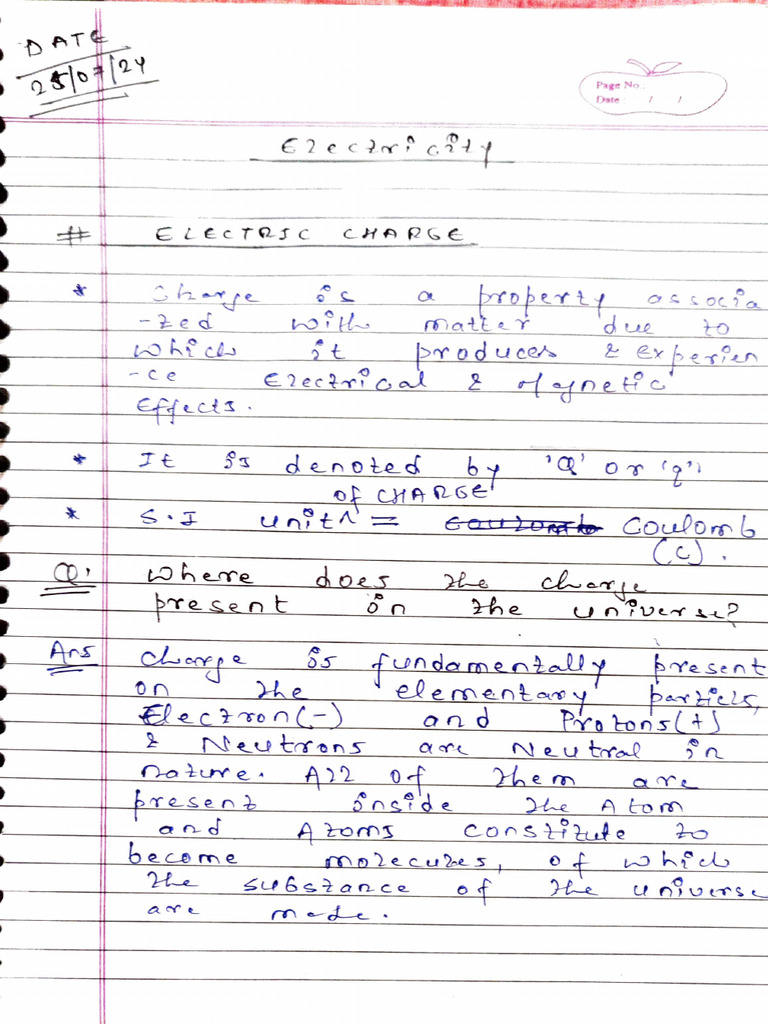 DATE
25/07/24
Page No.
Date / /
Electricity
# ELECTRIC CHARGE
* Charge is a property associa
-ted with matter due to
which it produces & experien
-ce Electrical & Magnetic
Effects.
* It is denoted by 'Q' or 'q'
of CHARGE
* S.I unit^ = Coulomb
(C).
Q. where does the charge
present in the universe?
Ans charge is fundamentally present
on the elementary particls,
Electron(-) and Protons(+)
& Neutrons are Neutral in
nature. All of them are
present inside the Atom
and Atoms constitute to
become molecules, of which
the substance of the universe
are made.